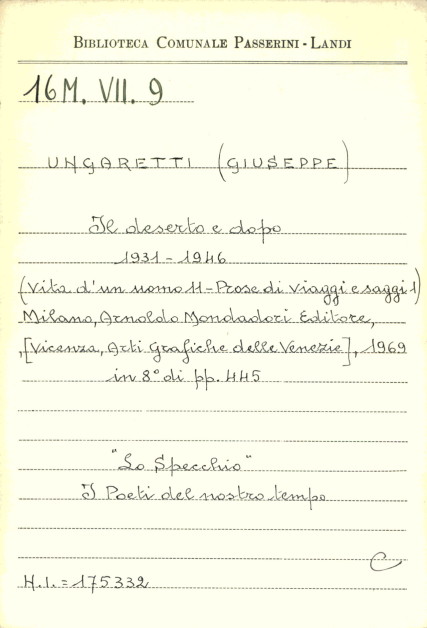 BIBLIOTECA COMUNALE PASSERINI - LANDI
16M. VII. 9
UNGARETTI (GIUSEPPE)
Il deserto e dopo
1931 - 1946
(Vita d'un uomo 11 - Prose di viaggi e saggi 1)
Milano, Arnoldo Mondadori Editore,
,[Vicenza, Arti Grafiche delle Venezie], 1969
in 8° di pp. 445
"Lo Specchio"
I Poeti del nostro tempo
C
H.I. = 175332